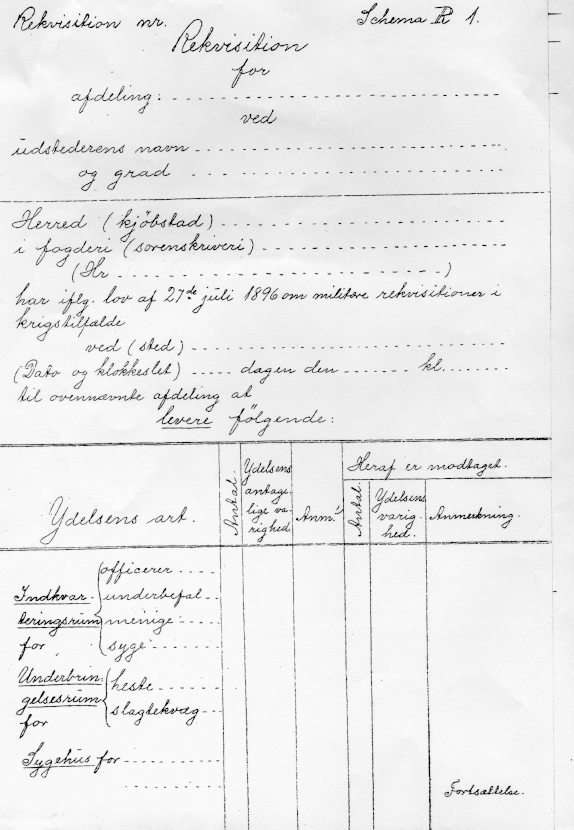 Rekvisition nr. Schema R 1.
Rekvisition
for
afdeling:
ved
udstederens navn
og grad
Herred (kjöbstad)
i fogderi (sorenskriveri)
(Hr )
har iflg. lov af 27de juli 1896 om militære rekvisitioner i
krigstilfælde
ved (sted)
(Dato og klokkeslet) dagen den kl.
til ovennævnte afdeling at
levere følgende:
Ydelsens art.
Antal.
Ydelsens
antage-
lige va-
righed.
Anm.
Heraf er modtaget.
Antal.
Ydelsens
varig-
hed.
Anmerkning.
Indkvar-
teringsrum
for
officerer
underbefal
menige
syge
Underbrin-
gelsesrum
for
heste
slagtekvæg
Sygehus for
Fortsættelse.